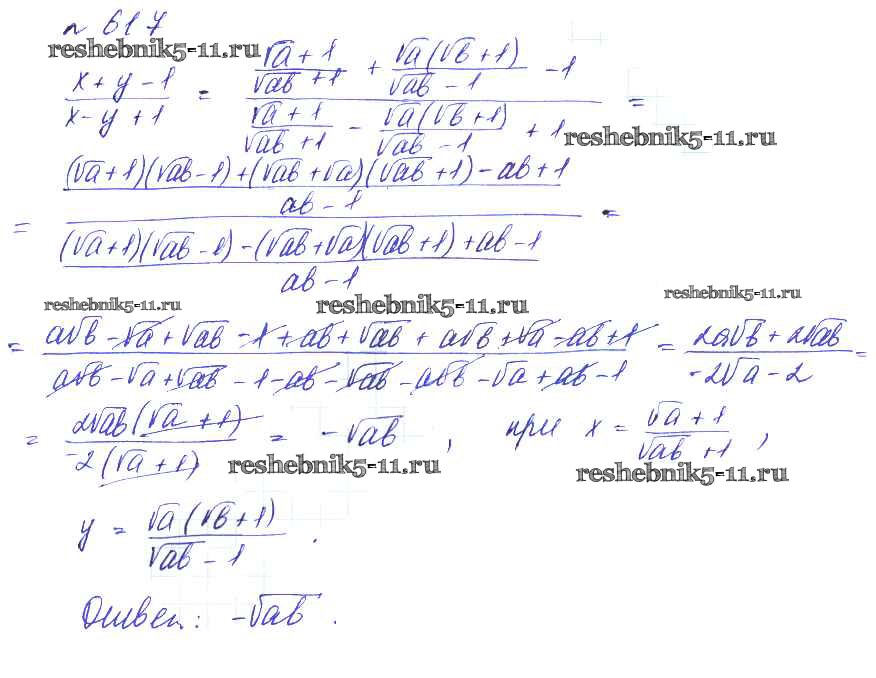 № 617
reshebnik5-11.ru
(x + y - 1)/(x - y + 1) = ((√a + 1)/(√ab + 1) + (√a(√b + 1))/(√ab - 1) - 1)/((√a + 1)/(√ab + 1) - (√a(√b + 1))/(√ab - 1) + 1) =
reshebnik5-11.ru
= (((√a + 1)(√ab - 1) + (√ab + √a)(√ab + 1) - ab + 1)/(ab - 1))/(((√a + 1)(√ab - 1) - (√ab + √a)(√ab + 1) + ab - 1)/(ab - 1)) =
reshebnik5-11.ru reshebnik5-11.ru reshebnik5-11.ru
= (a√b - √a + √ab - 1 + ab + √ab + a√b + √a - ab + 1)/(a√b - √a + √ab - 1 - ab - √ab - a√b - √a + ab - 1) = (2a√b + 2√ab)/(-2√a - 2) =
= (2√ab(√a + 1))/(-2(√a + 1)) = -√ab, при x = (√a + 1)/(√ab + 1),
reshebnik5-11.ru reshebnik5-11.ru
y = (√a(√b + 1))/(√ab - 1).
Ответ: -√ab.